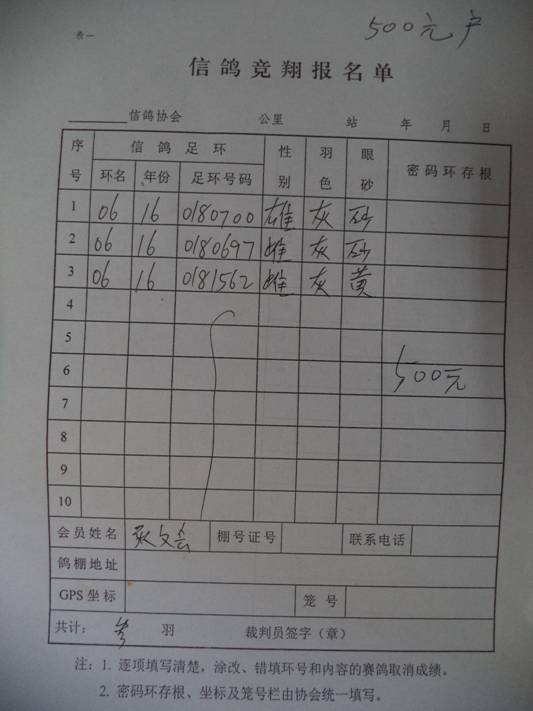 表一
500元户
信鸽竞翔报名单
信鸽协会 公里 站 年 月 日
序号 信鸽足环 性别 羽色 眼砂 密码环存根
环名 年份 足环号码
1 06 16 0180700 雄 灰 砂
2 06 16 0180697 雌 灰 砂
3 06 16 0181562 雌 灰 黄
4
5
6 500元
7
8
9
10
会员姓名 文会 棚号证号 联系电话
鸽棚地址
GPS坐标 笼号
共计: 羽 裁判员签字(章)
注:1. 逐项填写清楚,涂改、错填环号和内容的赛鸽取消成绩。
2. 密码环存根、坐标及笼号栏由协会统一填写。